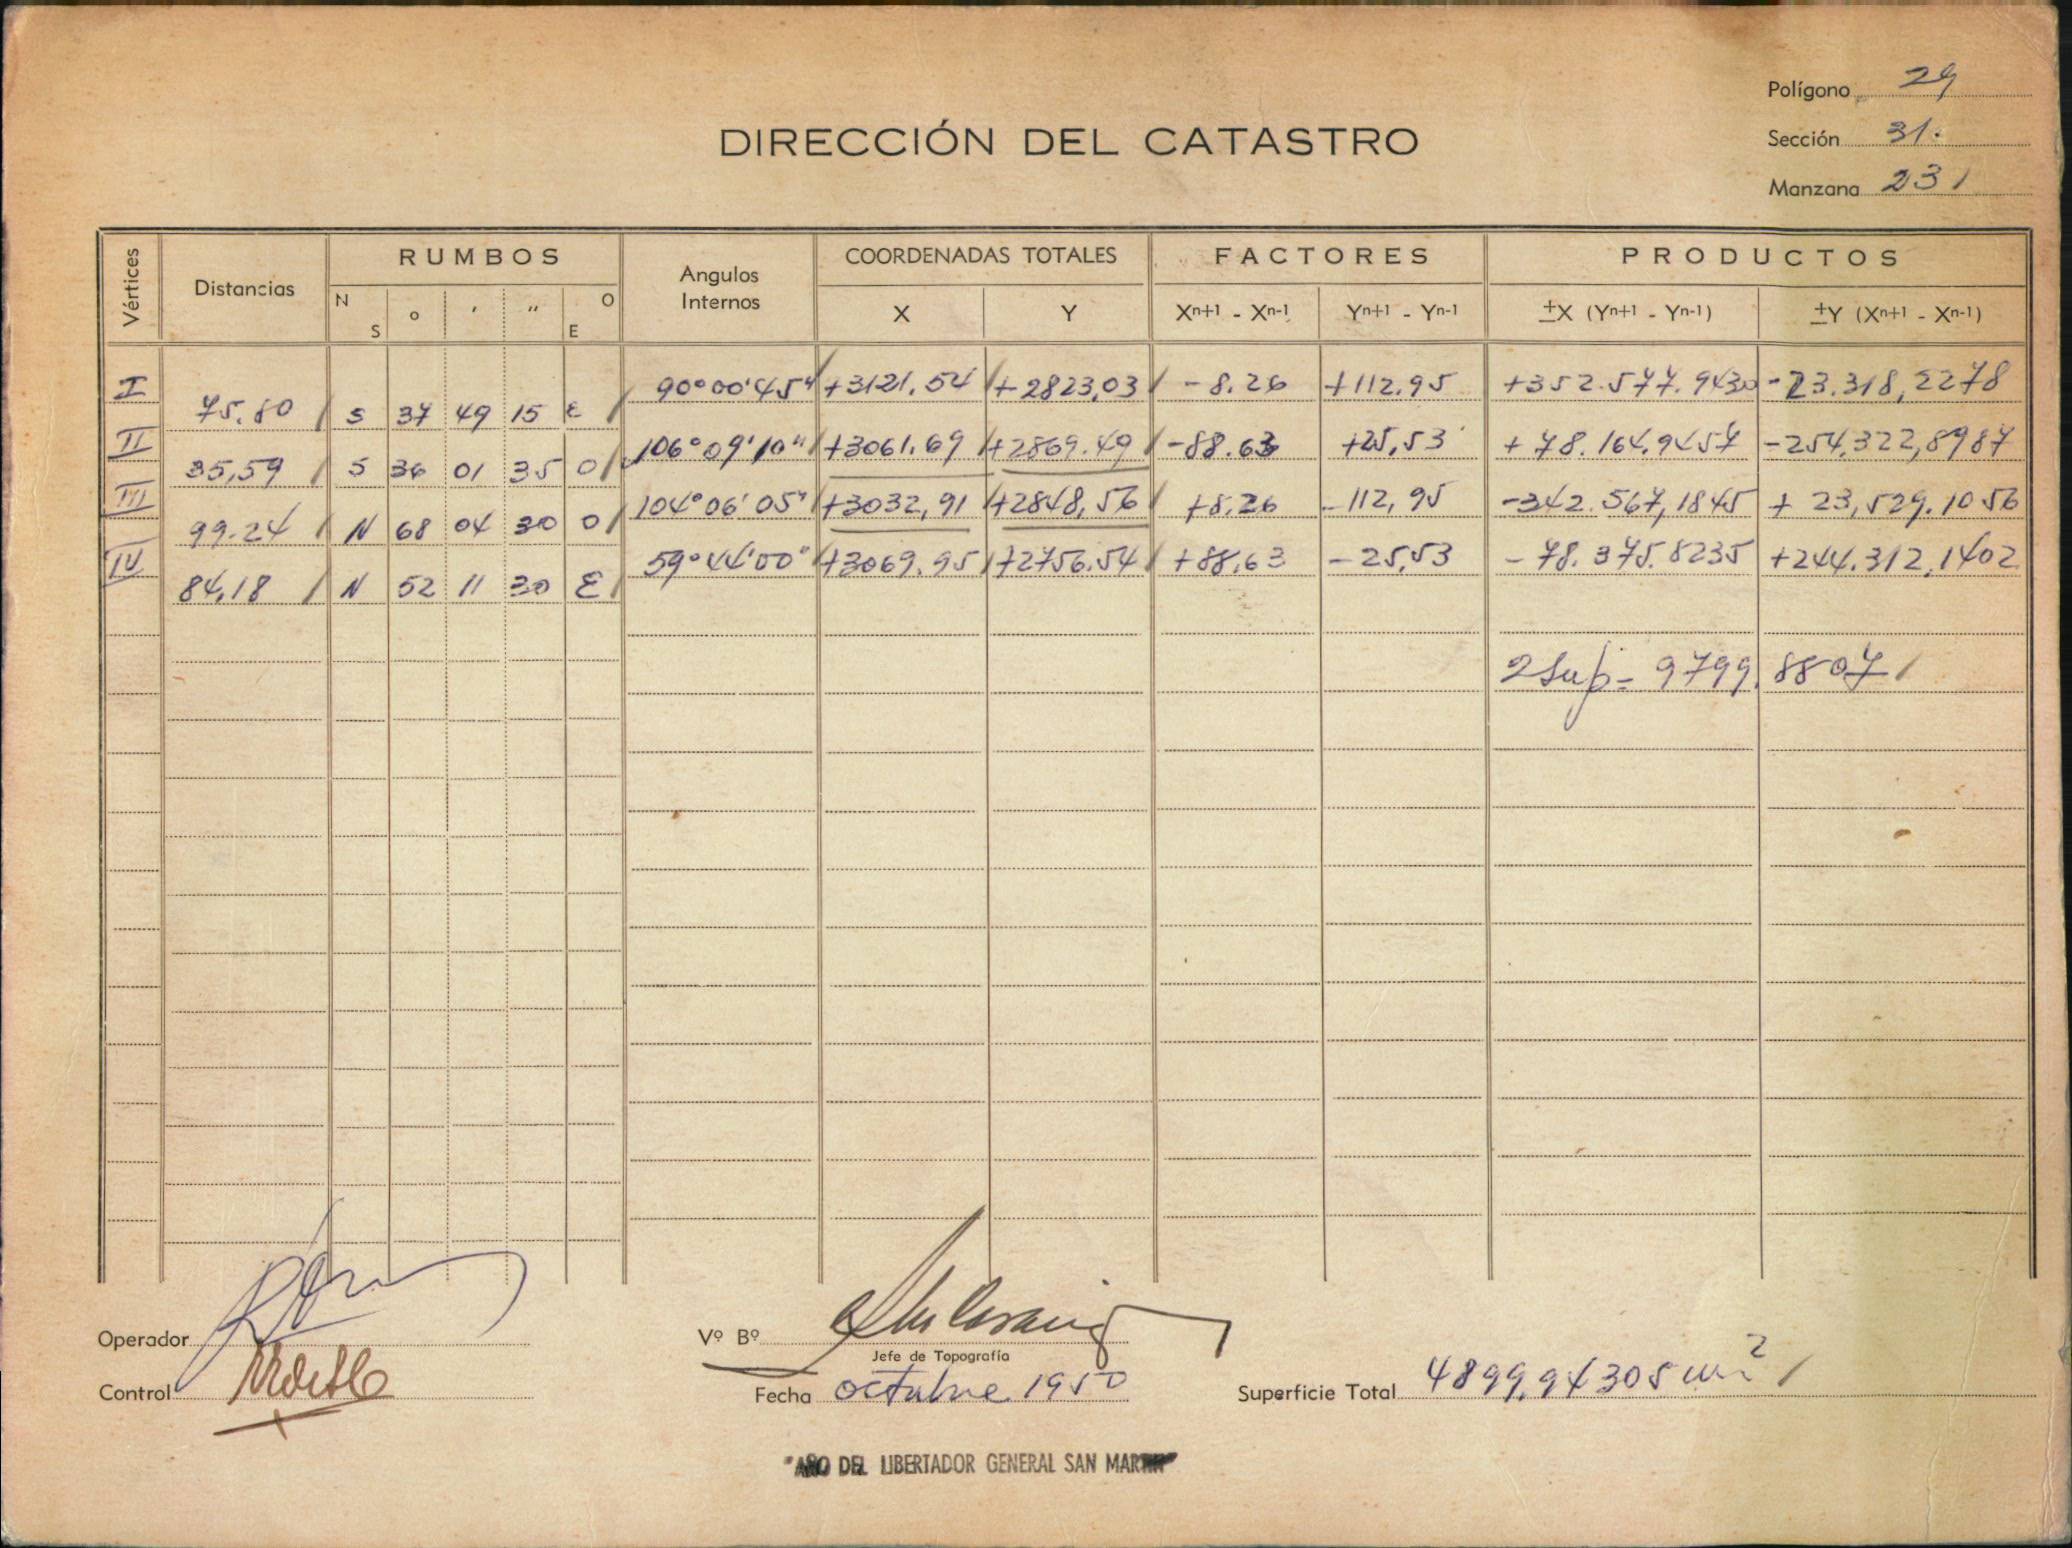 Polígono 29
DIRECCIÓN DEL CATASTRO
Sección 31.
Manzana 231
Vértices Distancias RUMBOS Angulos Internos COORDENADAS TOTALES FACTORES PRODUCTOS
N S o ' " E O X Y Xn+1 - Xn-1 Yn+1 - Yn-1 ±X (Yn+1 - Yn-1) ±Y (Xn+1 - Xn-1)
I 90°00'45" +3121.54 +2823,03 -8.26 +112.95 +352.577.9430 -23.318,2278
75.80 S 37 49 15 E
II 106°09'10" +3061.69 +2869.49 -88.63 +25,53 +78.164.9457 -254.322,8987
35,59 S 36 01 35 O
III 104°06'05" +3032,91 +2848,56 +8.26 -112,95 -342.567,1845 + 23,529.1056
99.24 N 68 04 30 O
IV 59°44'00" +3069.95 +2756.54 +88.63 -25,53 -78.375.8235 +244.312,1402
84,18 N 52 11 30 E
2Sup= 9799,8807
Operador
Vº Bº
Jefe de Topografía
Control
Fecha octubre 1950
Superficie Total 4899,94305 m²
"AÑO DEL LIBERTADOR GENERAL SAN MARTIN"